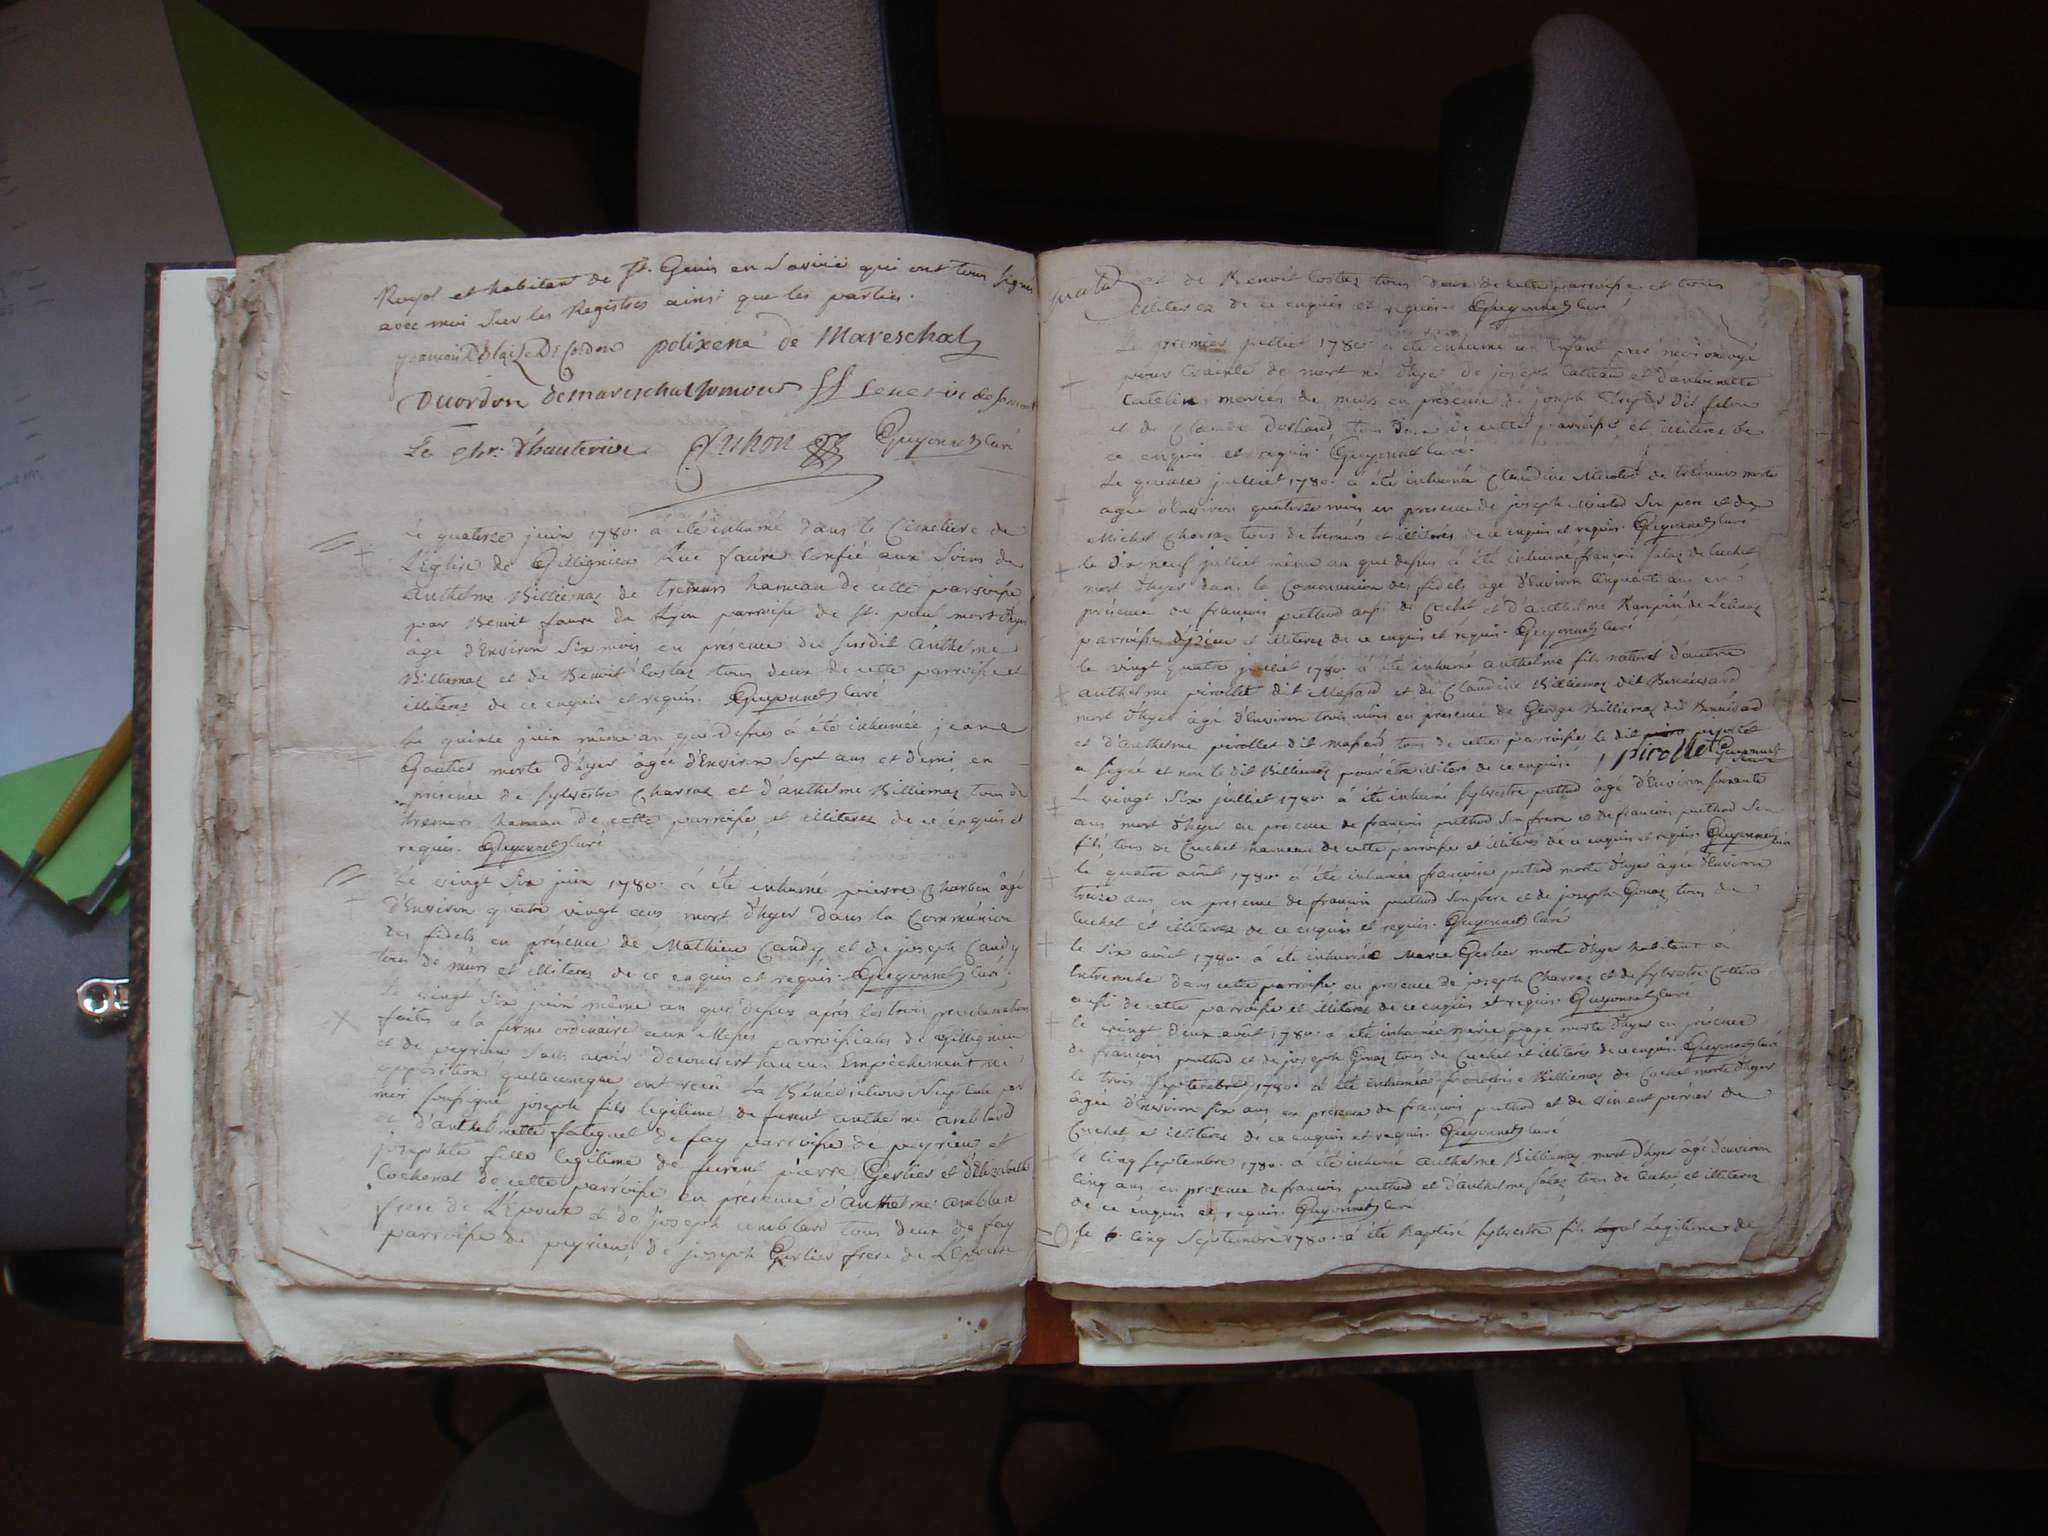 Royal et habitant de St. Genis en Savoie qui ont tous signés
avec moi sur les Registres ainsi que les parties.
De Cordon polixene de Mareschal
Ducordon Demareschal
Le chr. d'hauterive Guyonnet curé
Le quatorze juin 1780. a été inhumé dans le Cimetiere de
L'église de luc faure confié aux soins de
anthelme Billiemaz de tremurs hameau de cette parroisse
par Benoit faure de Lyon parroisse de St. paul mort d'hyer
âgé d'Environ Six mois en présence du susdit anthelme
Billiemaz et de Benoit Costaz tous deux de cette parroisse et
illiteres de ce enquis et requis. Guyonnet curé
Le quinze juin même an que dessus a été inhumée jeane
Gautier morte d'hyer âgée d'Environ Sept ans et demi en
présence de sylvestre Charvaz et d'anthelme Billiemaz tous de
tremurs hameau de cette parroisse et illiteres de ce enquis et
requis. Guyonnet curé
Le vingt Six juin 1780. a été inhumé pierre Charben âgé
d'Environ quatre vingt ans mort d'hyer dans la Communion
des fidels en présence de Mathieu Candy et de joseph Candy
tous de murs et illiteres de ce enquis et requis. Guyonnet curé.
Le vingt Six juin même an que dessus après les trois proclamations
faites a la forme ordinaire aux Messes parroissiales de
et de peyrieu sans avoir decouvert aucun Empêchement ni
opposition quelconque ont reçu la Bénédiction Nuptiale par
moi soussigné joseph fils legitime de furent anthelme amblard
et d'anthelmette de fay parroisse de peyrieu et
josephte fille legitime de furent pierre Gerlier et d'Elizabeth
Cochonat de cette parroisse en présence d'Anthelme amblard
frere de L'Epoux et de joseph amblard tous deux de fay
parroisse de peyrieu, de joseph Gerlier frere de L'Epouse
et de Benoit Costaz tous deux de cette parroisse et tous
illiteres de ce enquis et requis Guyonnet curé
Le premier juillet 1780. a été inhumé un Enfant ondoyé
pour crainte de mort né d'hyer de joseph et d'antoinette
de murs en présence de joseph dit
et de Claude tous deux de cette parroisse et illiteres de
ce enquis et requis. Guyonnet curé.
Le juillet 1780. a été inhumée Claudine de tremurs morte
agée d'Environ quatorze mois en presence de joseph son pere et de
Michel Charvaz tous de tremurs et illiterés de ce enquis et requis. Guyonnet curé
le Dix neuf juillet même an que dessus a été inhumé françois Salaz de Cuchet
mort d'hyer dans la Communion des fidels âgé d'Environ Cinquante ans en
présence de françois puthod aussi de Cuchet et d'anthelme de
parroisse et illiteres de ce enquis et requis. Guyonnet curé
le vingt quatre juillet 1780. a été inhumé anthelme fils naturel d'autre
anthelme pirollet dit Massard et de Claudine Billiemaz dit
mort d'hyer âgé d'Environ trois mois en présence de George Billiemaz dit
et d'anthelme pirollet dit massard tous de cette parroisse le dit pirollet
a signé et non le dit Billiemaz pour être illiteré de ce enquis. pirollet Guyonnet curé
Le vingt Six juillet 1780. a été inhumé sylvestre puthod âgé d'Environ soixante
ans mort d'hyer en présence de françois puthod son frere et de françois puthod son
fils tous de Cuchet hameau de cette parroisse et illiteres de ce enquis et requis. Guyonnet curé
le quatre août 1780. a été inhumée françoise puthod morte d'hyer âgée d'Environ
treize ans en presence de françois puthod son pere et de joseph Gonaz tous de
Cuchet et illiteres de ce enquis et requis. Guyonnet curé
le Six août 1780. a été inhumée Marie Gerlier morte d'hyer habitant a
Entreroche dans cette parroisse en présence de joseph Charvaz et de sylvestre
aussi de cette parroisse et illiteres de ce enquis et requis. Guyonnet curé
le vingt Deux août 1780. a été inhumée marie page morte d'hyer en présence
de françois puthod et de joseph Gonaz tous de Cuchet et illiteres de ce enquis. Guyonnet curé
le trois Septembre 1780. a été inhumée françoise Billiemaz de Cuchet morte d'hyer
âgée d'Environ six ans en présence de françois puthod et de vincent perrier de
Cuchet et illiteres de ce enquis et requis. Guyonnet curé
le Cinq septembre 1780. a été inhumé anthelme Billiemaz mort d'hyer âgé d'environ
Cinq ans en présence de françois puthod et d'anthelme Salaz tous de Cuchet et illiteres
de ce enquis et requis. Guyonnet curé
le Cinq Septembre 1780. a été Baptisé sylvestre fils Legitime de